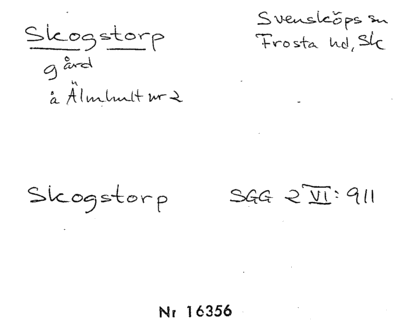 Skogstorp
Svensköps sn
Frosta hd, Sk
gård
å Älmhult nr 2
Skogstorp
SGG 2 VI: 911
Nr 16356